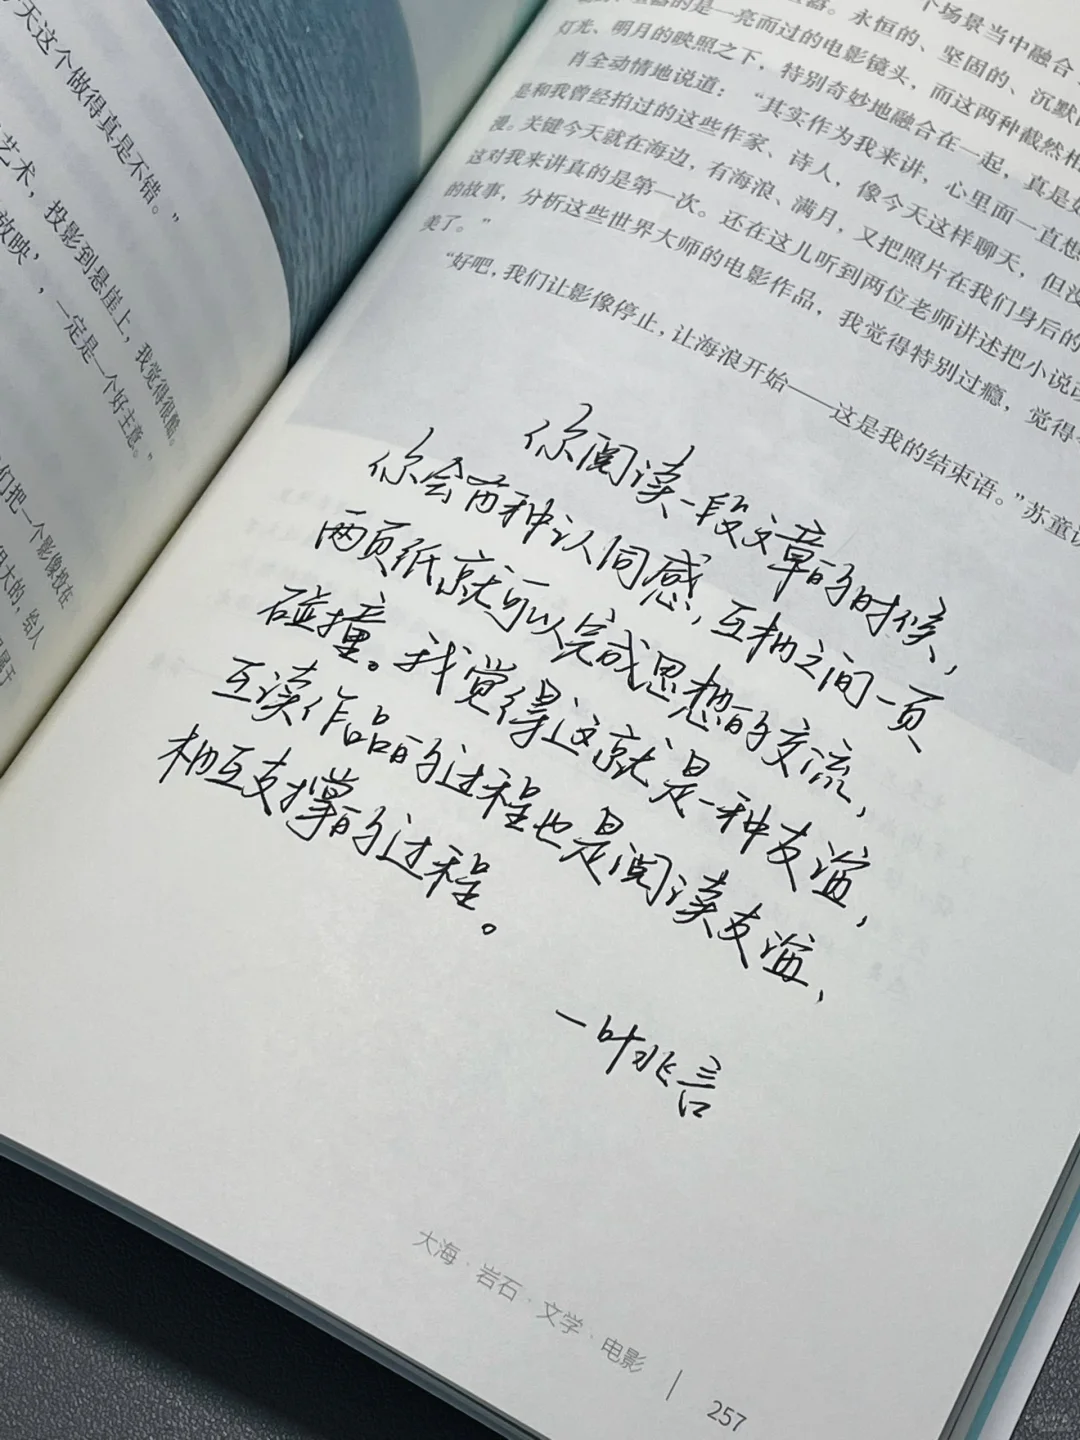 天这个做得真是不错。”
艺术，投影到悬崖上，我觉得很酷。
放映，一定是一个好主意。”
们把一个影像投在
大的，给人
个场景当中融合
的是一亮而过的电影镜头，而这两种截然相
永恒的、坚固的、沉默
灯光、明月的映照之下，特别奇妙地融合在一起，真是
肖全动情地说道：“其实作为我来讲，心里面一直想
是和我曾经拍过的这些作家、诗人，像今天这样聊天，但没
漫。关键今天就在海边，有海浪、满月，又把照片在我们身后的
这对我来讲真的是第一次。还在这儿听到两位老师讲述把小说改
的故事，分析这些世界大师的电影作品，我觉得特别过瘾，觉得
美了。”
“好吧，我们让影像停止，让海浪开始——这是我的结束语。”苏童说
你阅读一段文章的时候，
你会有种认同感，互相之间一页
两页纸就可以完成思想的交流，
碰撞。我觉得这就是一种友谊，
互读作品的过程也是阅读友谊，
相互支撑的过程。
一叶兆言
大海·岩石·文学·电影 | 257